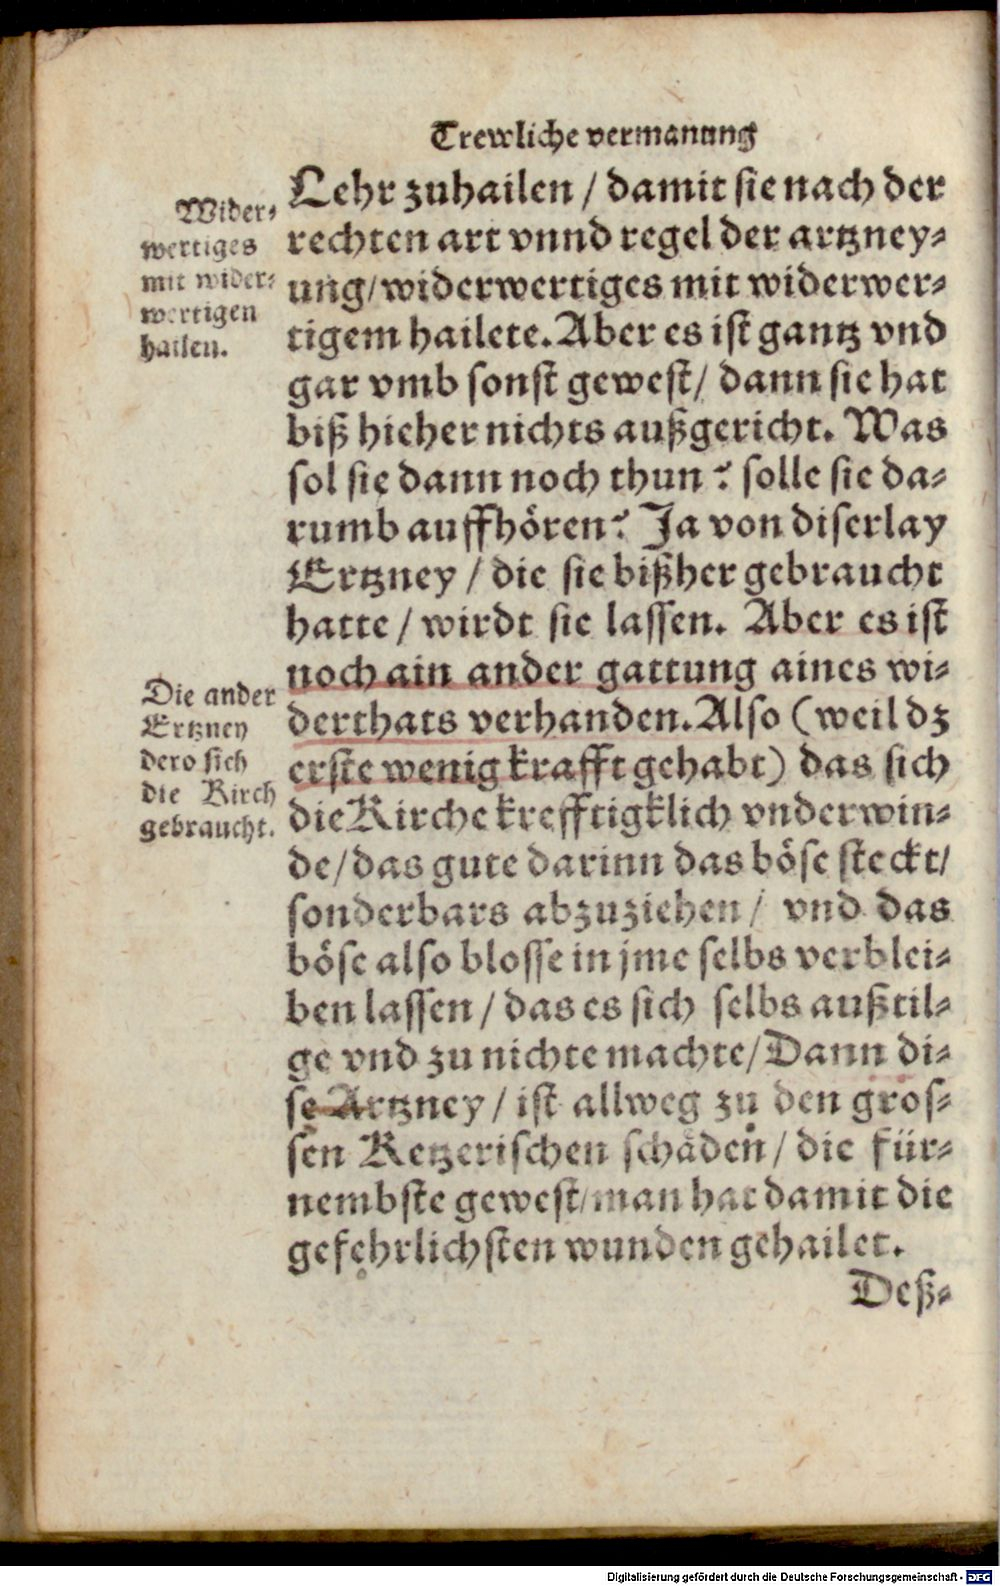 Trewliche vermanung
Lehr zuhailen / damit sie nach der
rechten art vnnd regel der artzney-
ung/widerwertiges mit widerwer-
tigem hailete. Aber es ist gantz vnd
gar vmb sonst gewest/ dann sie hat
biß hieher nichts außgericht. Was
sol sie dann noch thun? solle sie da-
rumb auffhören? Ja von diserlay
Ertzney / die sie bißher gebraucht
hatte / wirdt sie lassen. Aber es ist
noch ain ander gattung aines wi-
derthats verhanden. Also (weil dz
erste wenig krafft gehabt) das sich
die Kirche krefftigklich vnderwin-
de/das gute darinn das böse steckt/
sonderbars abzuziehen / vnd das
böse also blosse in jme selbs verblei-
ben lassen / das es sich selbs außtil-
ge vnd zu nichte machte/Dann di-
se Artzney / ist allweg zu den gros-
sen Ketzerischen schäden / die für-
nembste gewest/man hat damit die
gefehrlichsten wunden gehailet.
Deß-
Wider-
wertiges
mit wider-
wertigen
hailen.
Die ander
Ertzney
dero sich
die Kirch
gebraucht.
Digitalisierung gefördert durch die Deutsche Forschungsgemeinschaft - DFG